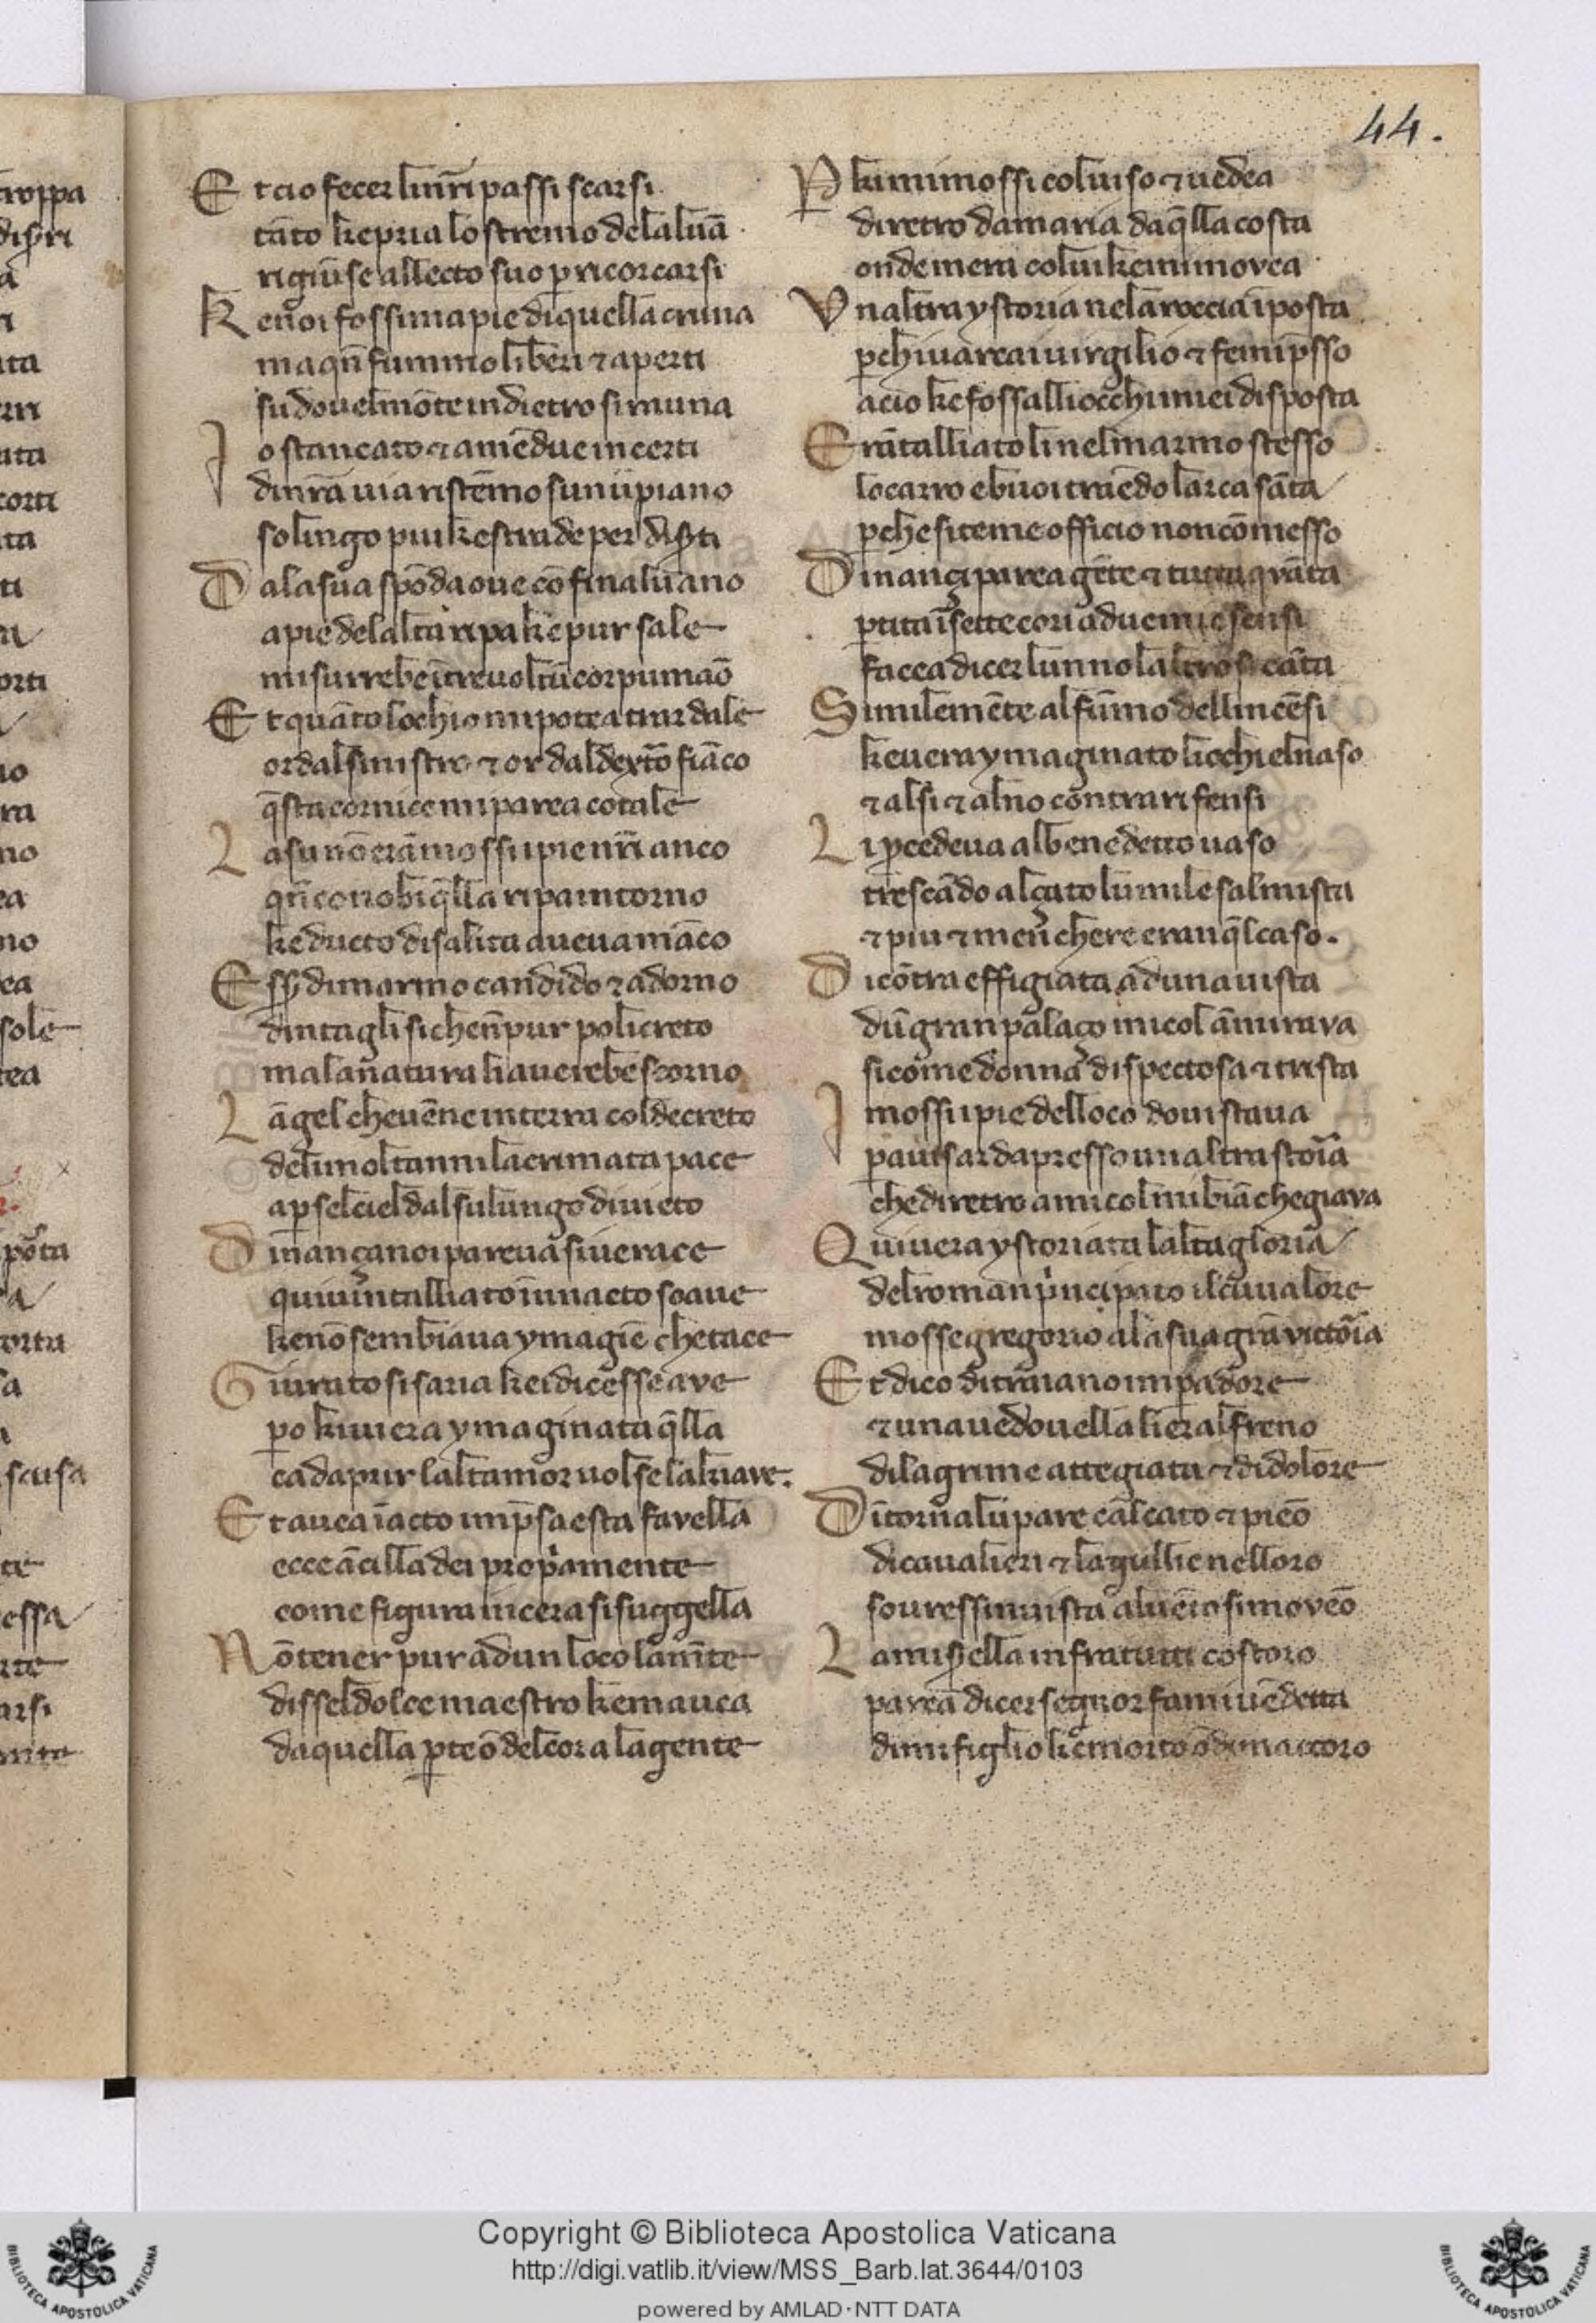 44.
E t cio fecer linr̄i passi scarsi.
tāto ke pria lo stremo dela luā.
rigiūse al lecto suo p ricorcarsi
K e noi fossimapie di quella cruna
ma qn̄ fummo liberi ⁊ aperti
su doue lmōte indietro si rauna
I o stancato ⁊ amēdue incerti
di nr̄a uia ristēmo su nūpiano
solingo piu ke strade per disti
D ala sua spōda oue cōfina luano
apie delalta ripa ke pur sale
misurrebe ītre uolte ū corpumaō
E t quāto lochio mi potea trar dale
or dal sinistro ⁊ or dal dextō fiāco
q̄sta cornice mi parea cotale
L a su nō erā mossi i pie nr̄i anco
qn̄ conobi q̄lla ripa intorno
ke ducto di salita aueua māco
E ss̄ di marmo candido ⁊ adorno
dintagli si che nō pur policreto
ma la natura li auerebe scorno
L āgel che uēne in terra col decreto
de li molt anni lacrimata pace
ap sel ciel dal su lungo diuieto
D inançi a noi pareua si uerace
quiui ntalliato ī un acto soaue
ke nō sembiaua ymagīe che tace
G iurato si saria kei dicesse ave
po kiui era ymaginata q̄lla
cad apur lalt amor uolse la kiave.
E t auea ī acto imp̄sa esta favella
ecce ācilla dei propiamente
come figura in cera si suggella
N ō tener pur ad un loco lam̄te
disse l dolce maestro ke mauea
da quella pte ō del cor a la gente
P kimi mossi col uiso ⁊ uedea
diretro da maria da q̄lla costa
onde mera colui kemi movea
V naltra ystoria nela roccia īposta
pchi uarcai uirgilio ⁊ femi p̄sso
acio ke fossalli occhi miei disposta
E rātalliato li nel marmo stesso
lo carro e buoi traēdo larca sāta
pche si teme officio non cōmesso
D inançi parea gēte ⁊ tutta qnāta
ptita ī sette cori a due mie sensi
facea dicer lun no laltro si cāta
S imilemēte al fūmo dellincēsi
ke uera ymaginato liochi elnaso
⁊ al si ⁊ al no contrari fensi
L i pcedeua al benedetto uaso
trescādo alçato lumile salmista
⁊ piu ⁊ men che re eran q̄l caso.
D i cōtra effigiata ad una uista
dū gran palaço micol āmirava
si come donna dispectosa ⁊ trista
I mossi i pie delloco dou istaua
p auisar da presso unaltra stoīa
che diretro a micol mi biāchegiava
Q uiuera ystoriata lalta gloria
del roman pncipato il cui ualore
mosse gregorio ala sua grā victōia
E t dico di traiano impadore
⁊ una uedouella li era l freno
di lagrime attegiata ⁊ di dolore
D ītorn a lui parea calcato ⁊ pieō
di caualieri ⁊ lagullie nelloro
souressi in uista al uēto si moveō
L a misella infra tutti costoro
parea dicer segnor fami uēdetta
di mi figlio ke morto ōdi maccoro
Copyright © Biblioteca Apostolica Vaticana
http://digi.vatlib.it/view/MSS_Barb.lat.3644/0103
powered by AMLAD·NTT DATA
BIBLIOTECA APOSTOLICA VATICANA
BIBLIOTECA APOSTOLICA VATICANA